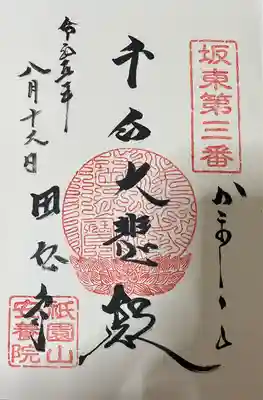 坂東第三番
かまくら
千手大悲殿
田代寺
祇園山
安養院
令和五年
八月十九日